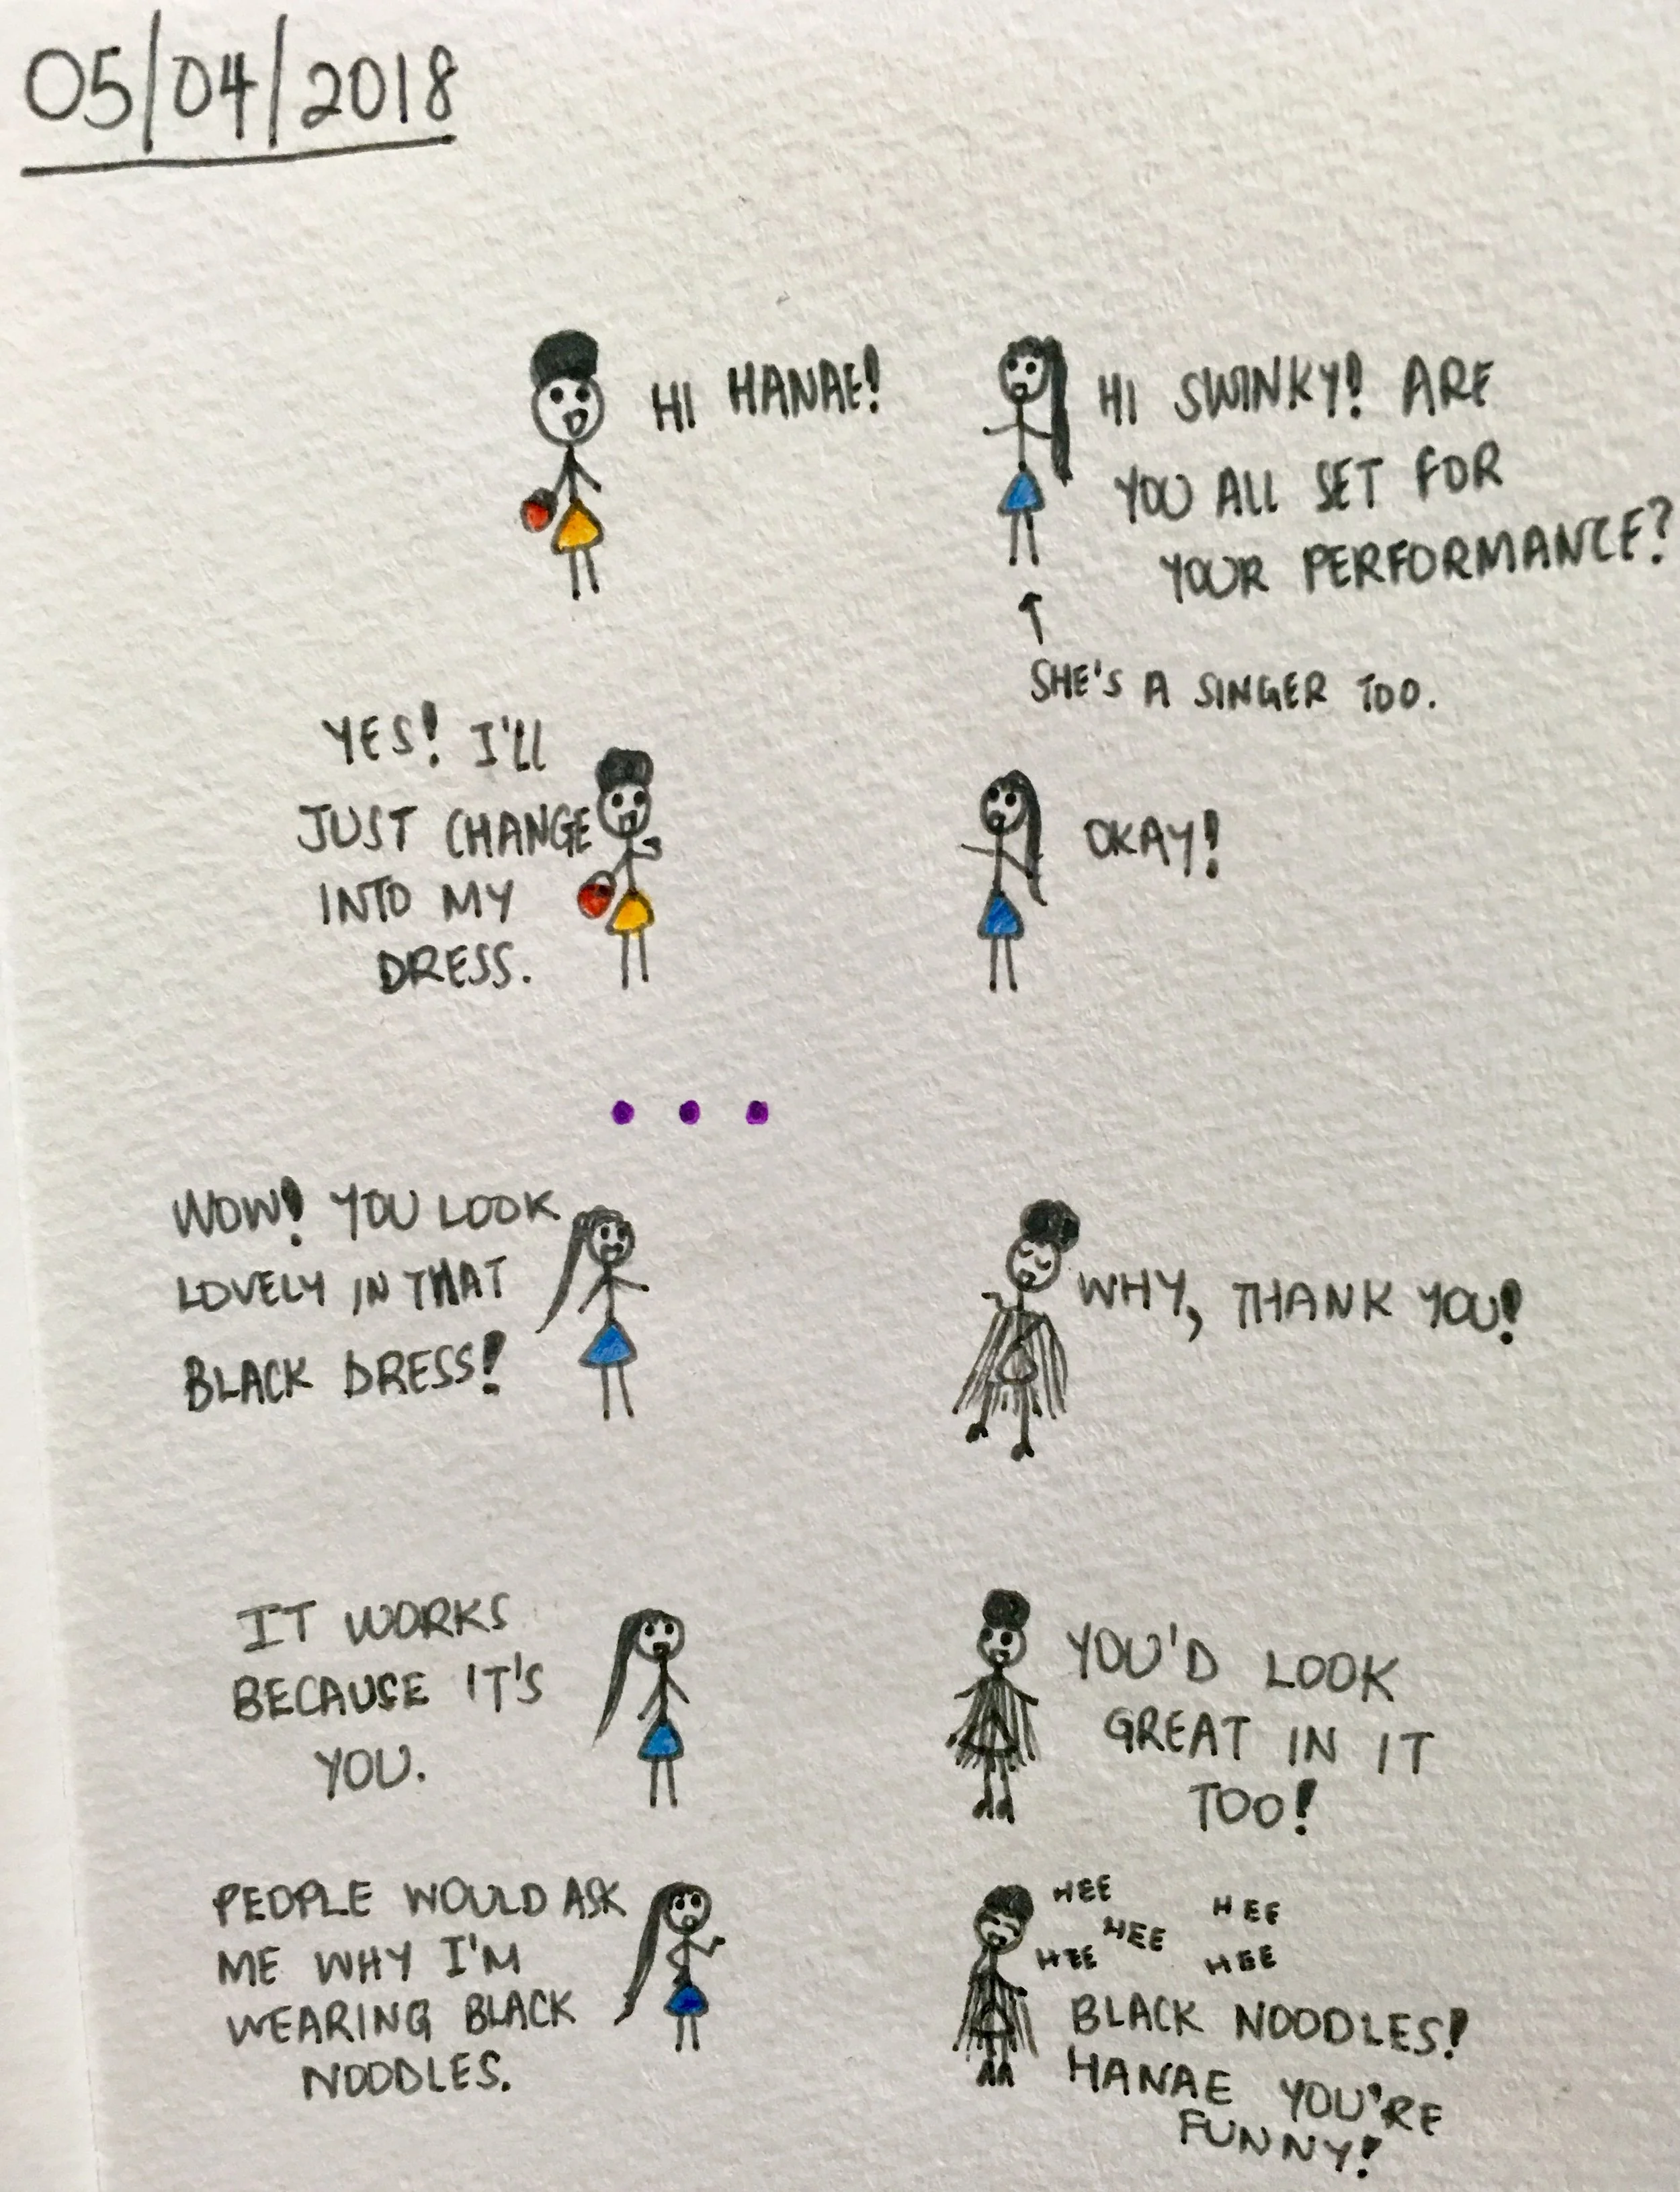 05/04/2018
HI HANAE!
HI SWINKY! ARE
YOU ALL SET FOR
YOUR PERFORMANCE?
SHE'S A SINGER TOO.
YES! I'LL
JUST CHANGE
INTO MY
DRESS.
OKAY!
WOW! YOU LOOK
LOVELY IN THAT
BLACK DRESS!
WHY, THANK YOU!
IT WORKS
BECAUSE IT'S
YOU.
YOU'D LOOK
GREAT IN IT
TOO!
PEOPLE WOULD ASK
ME WHY I'M
WEARING BLACK
NOODLES.
HEE HEE
HEE
HEE HEE
BLACK NOODLES!
HANAE YOU'RE
FUNNY!